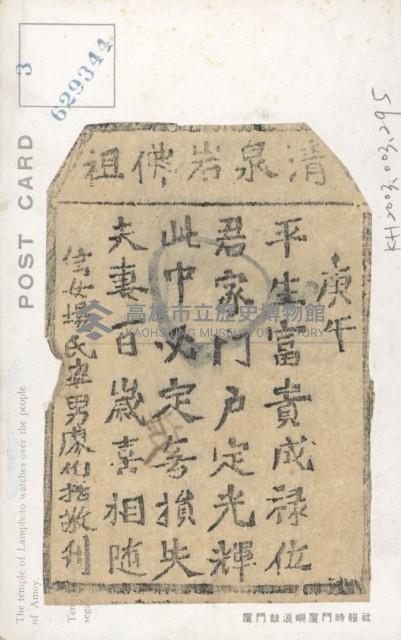 3
629344
POST CARD
KH2003.003.295
清泉岩佛祖
庚午
平生富貴成禄位
君家門户定光輝
此中必定無損失
夫妻百歲喜相随
信女楊氏 男廖 敬刊
高雄市立歷史博物館
KAOHSIUNG MUSEUM OF HISTORY
The temple of Lamphoto watches over the people
of Amoy.
厦門鼓浪嶼厦門時報社